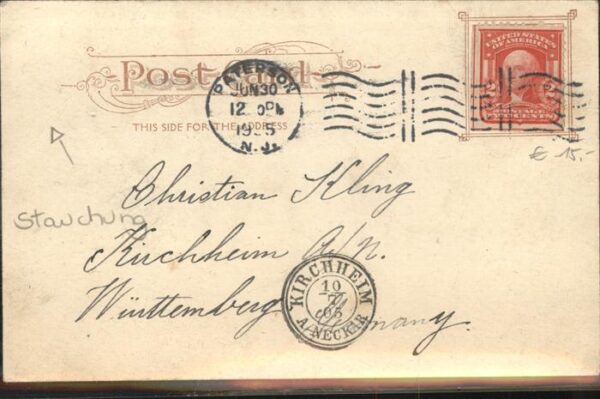 Post Card
THIS SIDE FOR THE ADDRESS
PATERSON
JUN 30
12
1905
N.J.
UNITED STATES
OF AMERICA
POSTAGE
CENTS
€ 15.-
Stauchung
Christian Kling
Kirchheim a/N.
Württemberg
Germany.
KIRCHHEIM
10
7
05
A/NECKAR